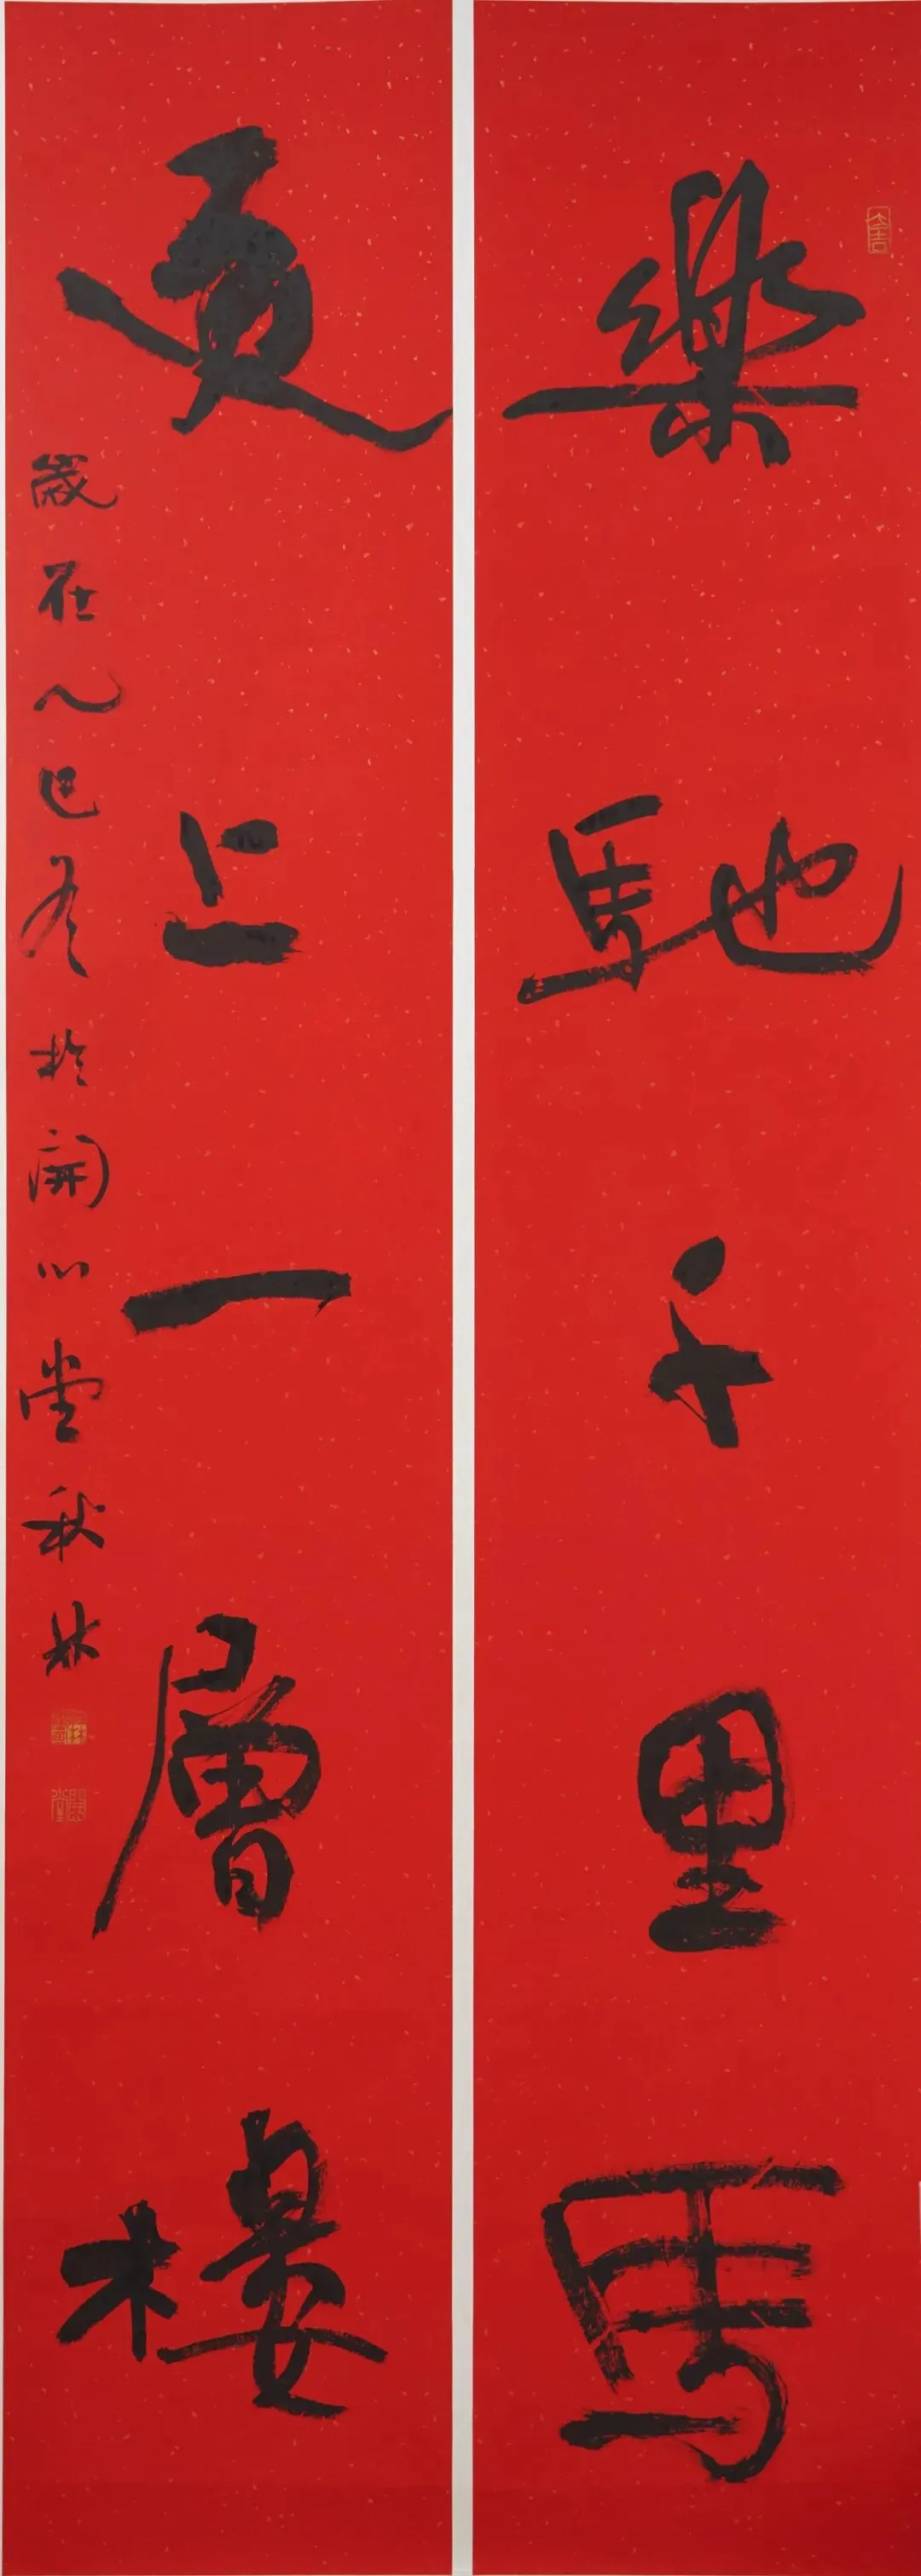 大吉
樂馳千里馬
更上一層樓
歲在乙巳冬於開心堂秋林